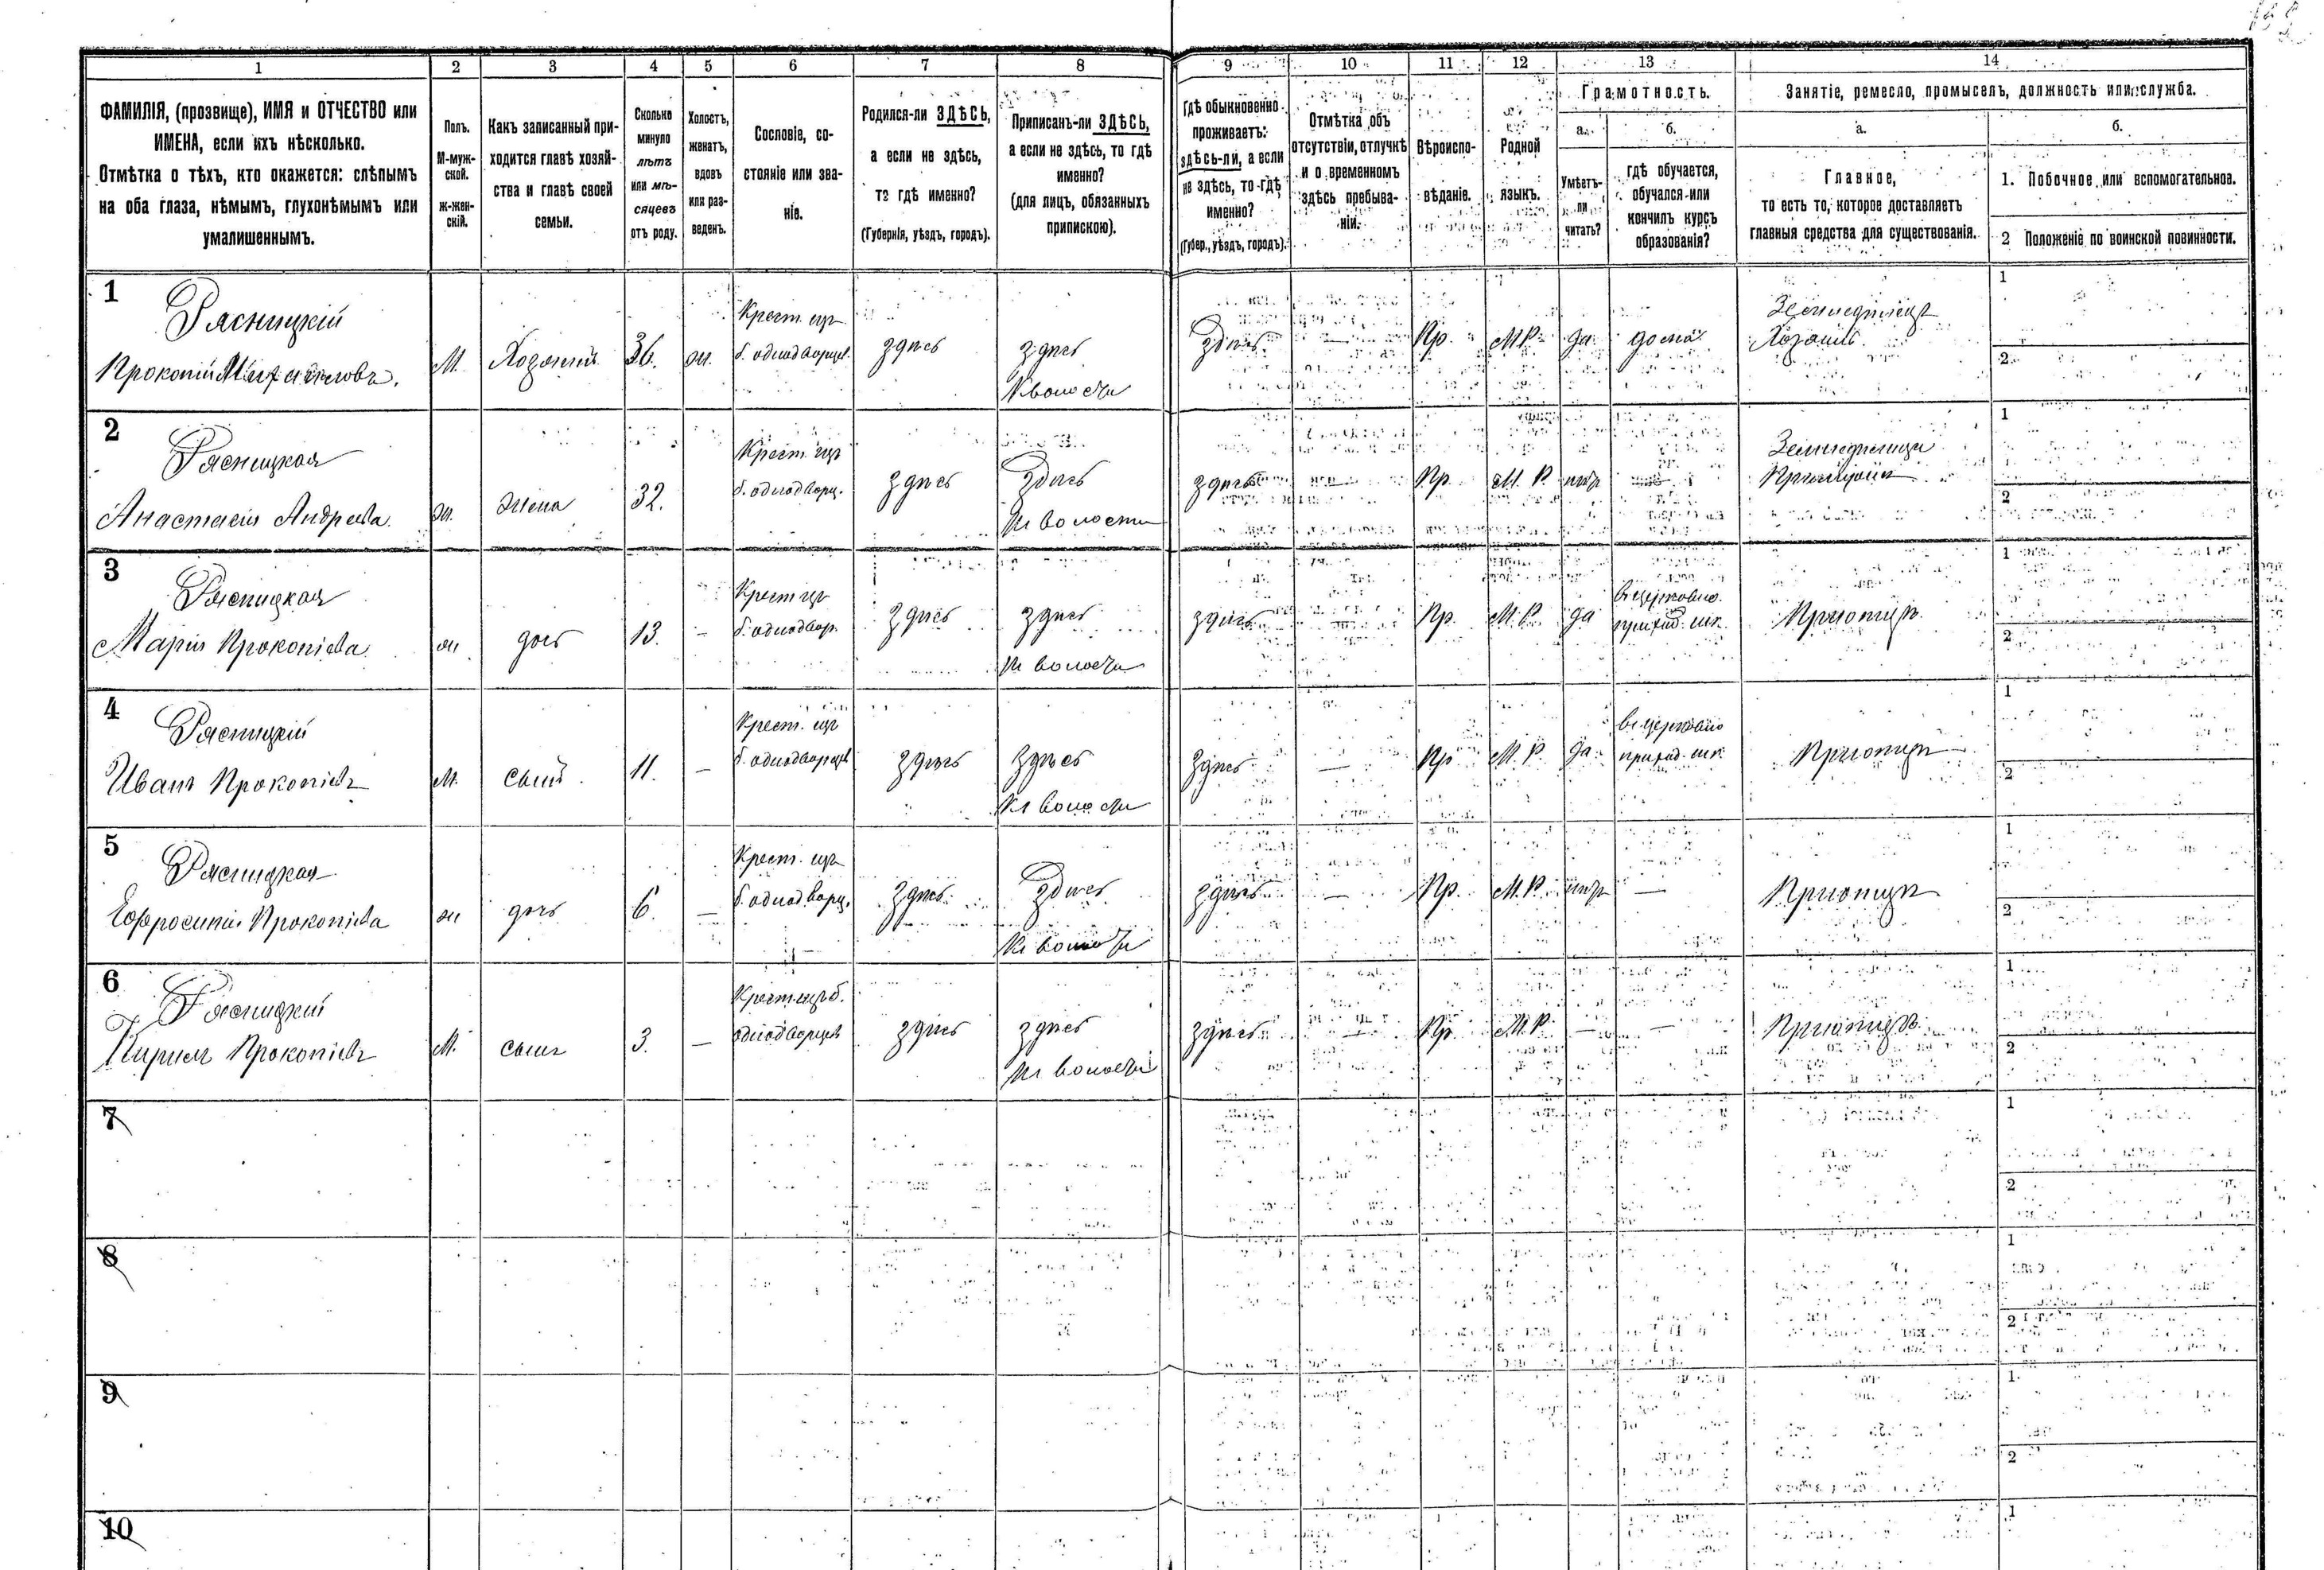 1 2 3 4 5 6 7 8 9 10 11 12 13 14
ФАМИЛІЯ, (прозвище), ИМЯ и ОТЧЕСТВО или
ИМЕНА, если ихъ нѣсколько.
Отмѣтка о тѣхъ, кто окажется: слѣпымъ
на оба глаза, нѣмымъ, глухонѣмымъ или
умалишеннымъ.
Полъ.
М-муж-
ской.
ж-жен-
скій.
Какъ записанный при-
ходится главѣ хозяй-
ства и главѣ своей
семьи.
Сколько
минуло
лѣтъ
или мѣ-
сяцевъ
отъ роду.
Холостъ,
женатъ,
вдовъ
или раз-
веденъ.
Сословіе, со-
стояніе или зва-
ніе.
Родился-ли ЗДѢСЬ,
а если не здѣсь,
то гдѣ именно?
(Губернія, уѣздъ, городъ).
Приписанъ-ли ЗДѢСЬ,
а если не здѣсь, то гдѣ
именно?
(для лицъ, обязанныхъ
припискою).
Гдѣ обыкновенно
проживаетъ:
здѣсь-ли, а если
не здѣсь, то гдѣ
именно?
(Губер., уѣздъ, городъ).
Отмѣтка объ
отсутствіи, отлучкѣ
и о временномъ
здѣсь пребыва-
ніи.
Вѣроиспо-
вѣданіе.
Родной
языкъ.
Грамотность.
а.
Умѣетъ-
ли
читать?
б.
гдѣ обучается,
обучался или
кончилъ курсъ
образованія?
Занятіе, ремесло, промыселъ, должность или служба.
а.
Главное,
то есть то, которое доставляетъ
главныя средства для существованія.
б.
1. Побочное или вспомогательное.
2 Положеніе по воинской повинности.
1
Рясницкій
Прокопій Михаиловъ.
М. Хозяинъ 36. ж.
Крест. изъ
б. однодворцевъ
здѣсь здѣсь
Къ волости
здѣсь — Пр. М.Р. да дома
Земледѣлецъ
Хозяинъ.
1
2
2
Рясницкая
Анастасія Андреева.
ж. жена 32.
Крест. изъ
б. однодворц.
здѣсь здѣсь
Къ волости
здѣсь — Пр. М. Р. нѣтъ —
1
2
3
Рясницкая
Марія Прокопіева
ж дочь 13. —
Крест изъ
б. однодвор.
здѣсь здѣсь
Къ волости
здѣсь — Пр. М. Р. да
въ церковно
приход. шк.
1
2
4
Рясницкій
Иванъ Прокопіевъ
М. сынъ. 11. —
Крест. изъ
б. однодворцевъ
здѣсь здѣсь
Къ волости
здѣсь — Пр М. Р. да
въ церковно
приход. шк.
1
2
5
Рясницкая
Ефросинія Прокопіева
ж дочь 6. —
Крест. изъ
б. однодворц.
здѣсь здѣсь
Къ волости
здѣсь — Пр. М. Р. нѣтъ —
1
2
6
Рясницкій
Кирилъ Прокопіевъ
М. сынъ 3. —
Крест. изъ б.
однодворцевъ
здѣсь здѣсь
Къ волости
здѣсь — Пр. М. Р. — —
1
2
7
1
2
8
1
2
9
1
2
10
1